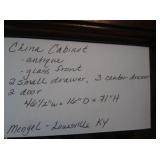 China Cabinet
- antique
- glass front
2 small drawer, 3 center drawer
2 door
46 1/2" w = 16" D = 71" H
Mengel - Louisville KY